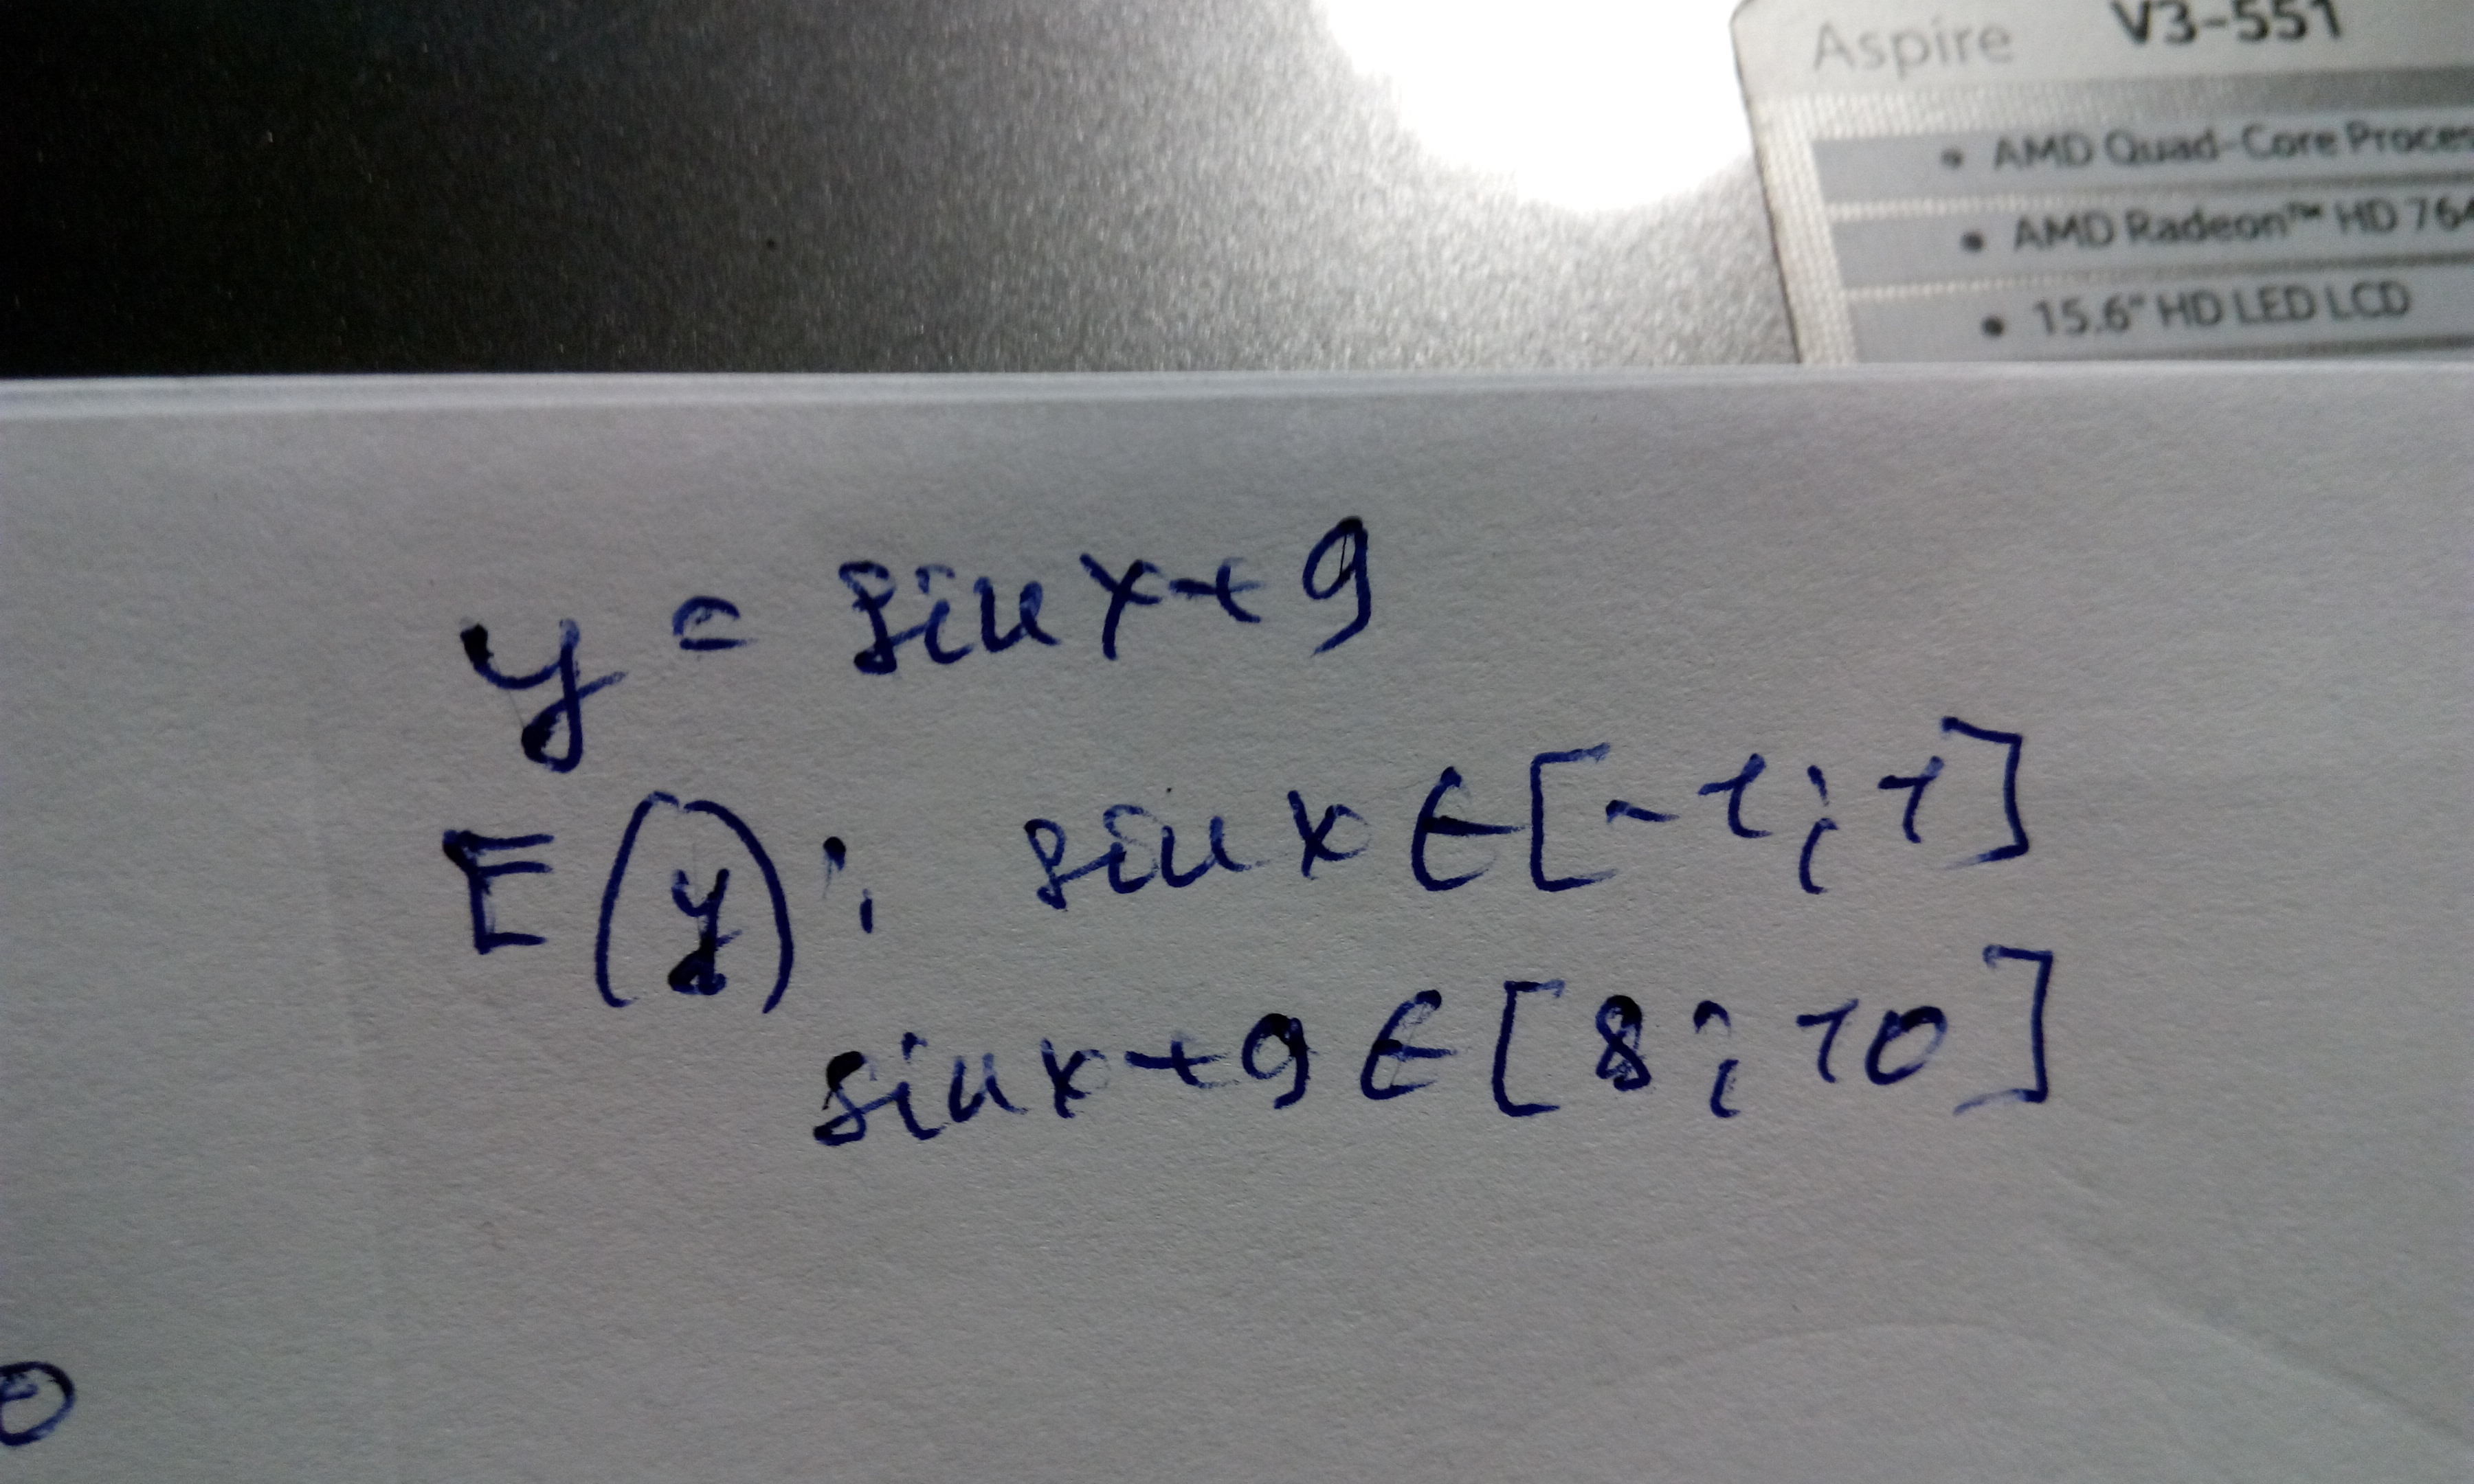 Aspire V3-551
• AMD Quad-Core Proces
• AMD Radeon™ HD 764
• 15.6" HD LED LCD
y = sin x + 9
E(y): sin x ∈ [-1; 1]
sin x + 9 ∈ [8; 10]
0